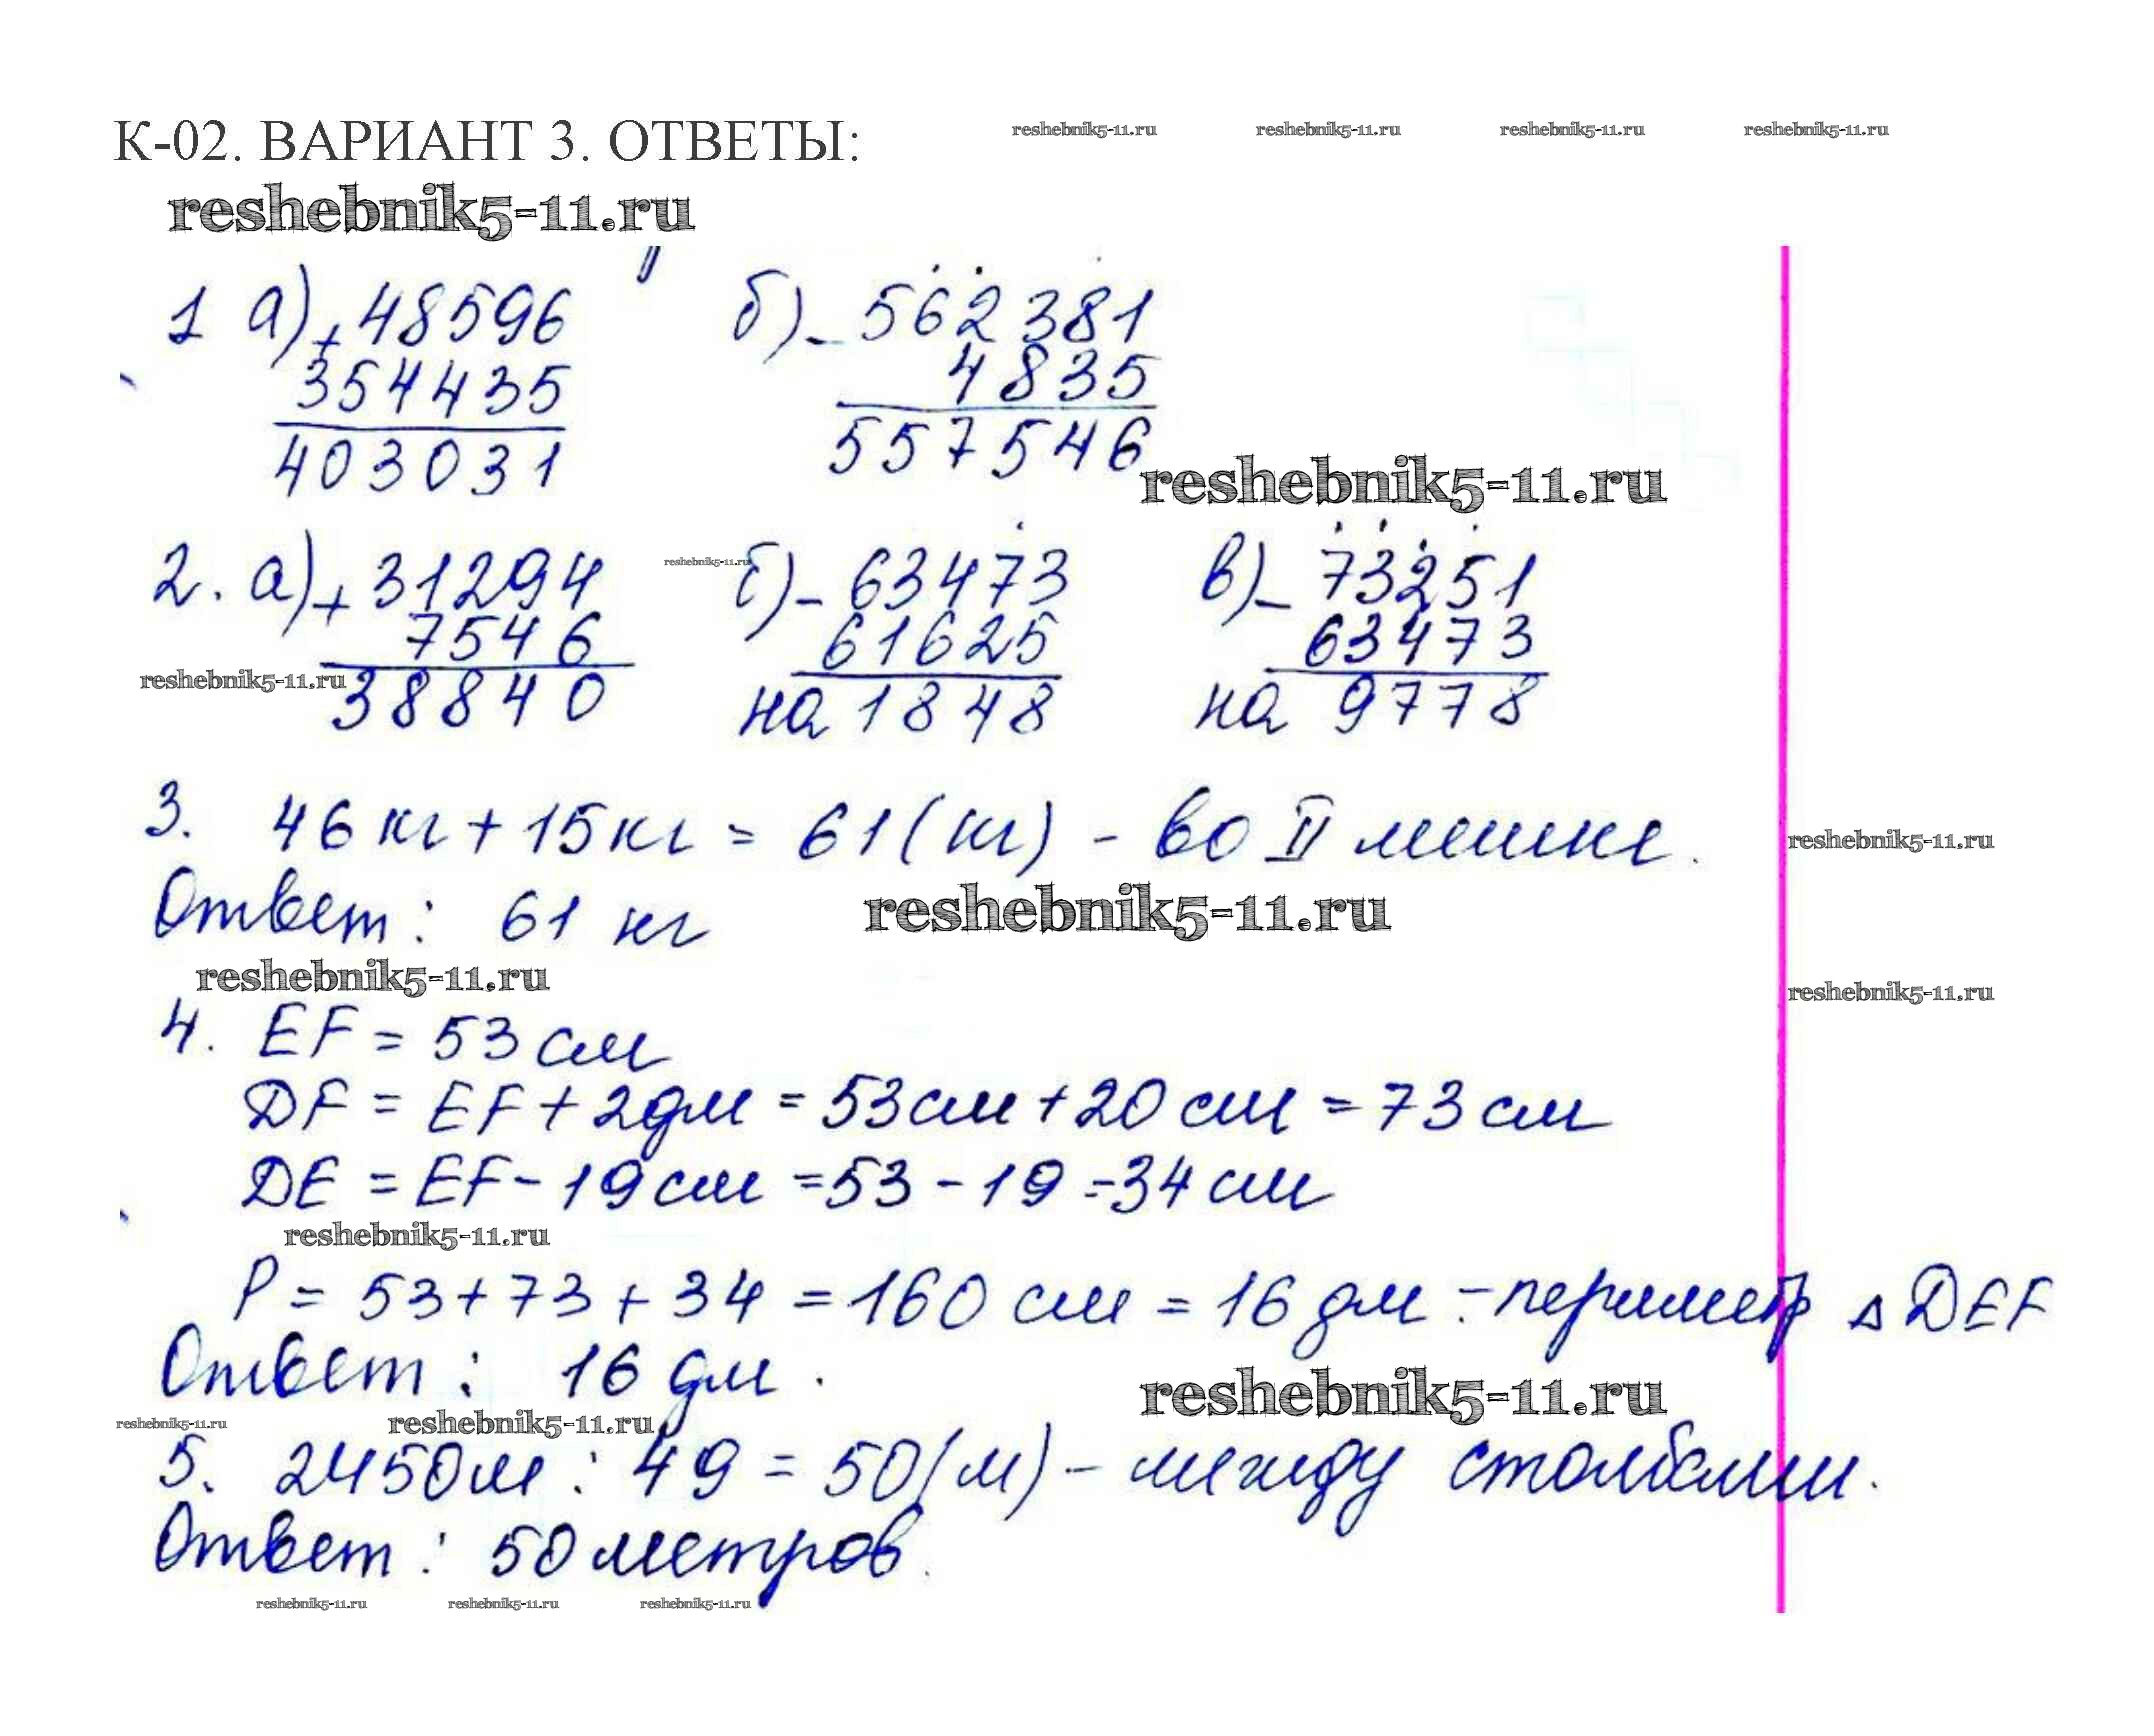 К-02. ВАРИАНТ 3. ОТВЕТЫ:
reshebnik5-11.ru reshebnik5-11.ru reshebnik5-11.ru reshebnik5-11.ru
reshebnik5-11.ru
1 а) + 48596 б) - 562381
354435 4835
403031 557546
reshebnik5-11.ru
2. а) + 31294 б) - 63473 в) - 73251
reshebnik5-11.ru
7546 61625 63473
reshebnik5-11.ru
38840 на 1848 на 9778
3. 46 кг + 15 кг = 61 (кг) - во II мешке.
reshebnik5-11.ru
Ответ: 61 кг
reshebnik5-11.ru
reshebnik5-11.ru
reshebnik5-11.ru
4. EF = 53 см
DF = EF + 2дм = 53см + 20 см = 73 см
DE = EF - 19 см = 53 - 19 = 34 см
reshebnik5-11.ru
P = 53 + 73 + 34 = 160 см = 16 дм - периметр △ DEF
Ответ: 16 дм.
reshebnik5-11.ru
reshebnik5-11.ru reshebnik5-11.ru
5. 2450м : 49 = 50 (м) - между столбами.
Ответ: 50 метров.
reshebnik5-11.ru reshebnik5-11.ru reshebnik5-11.ru